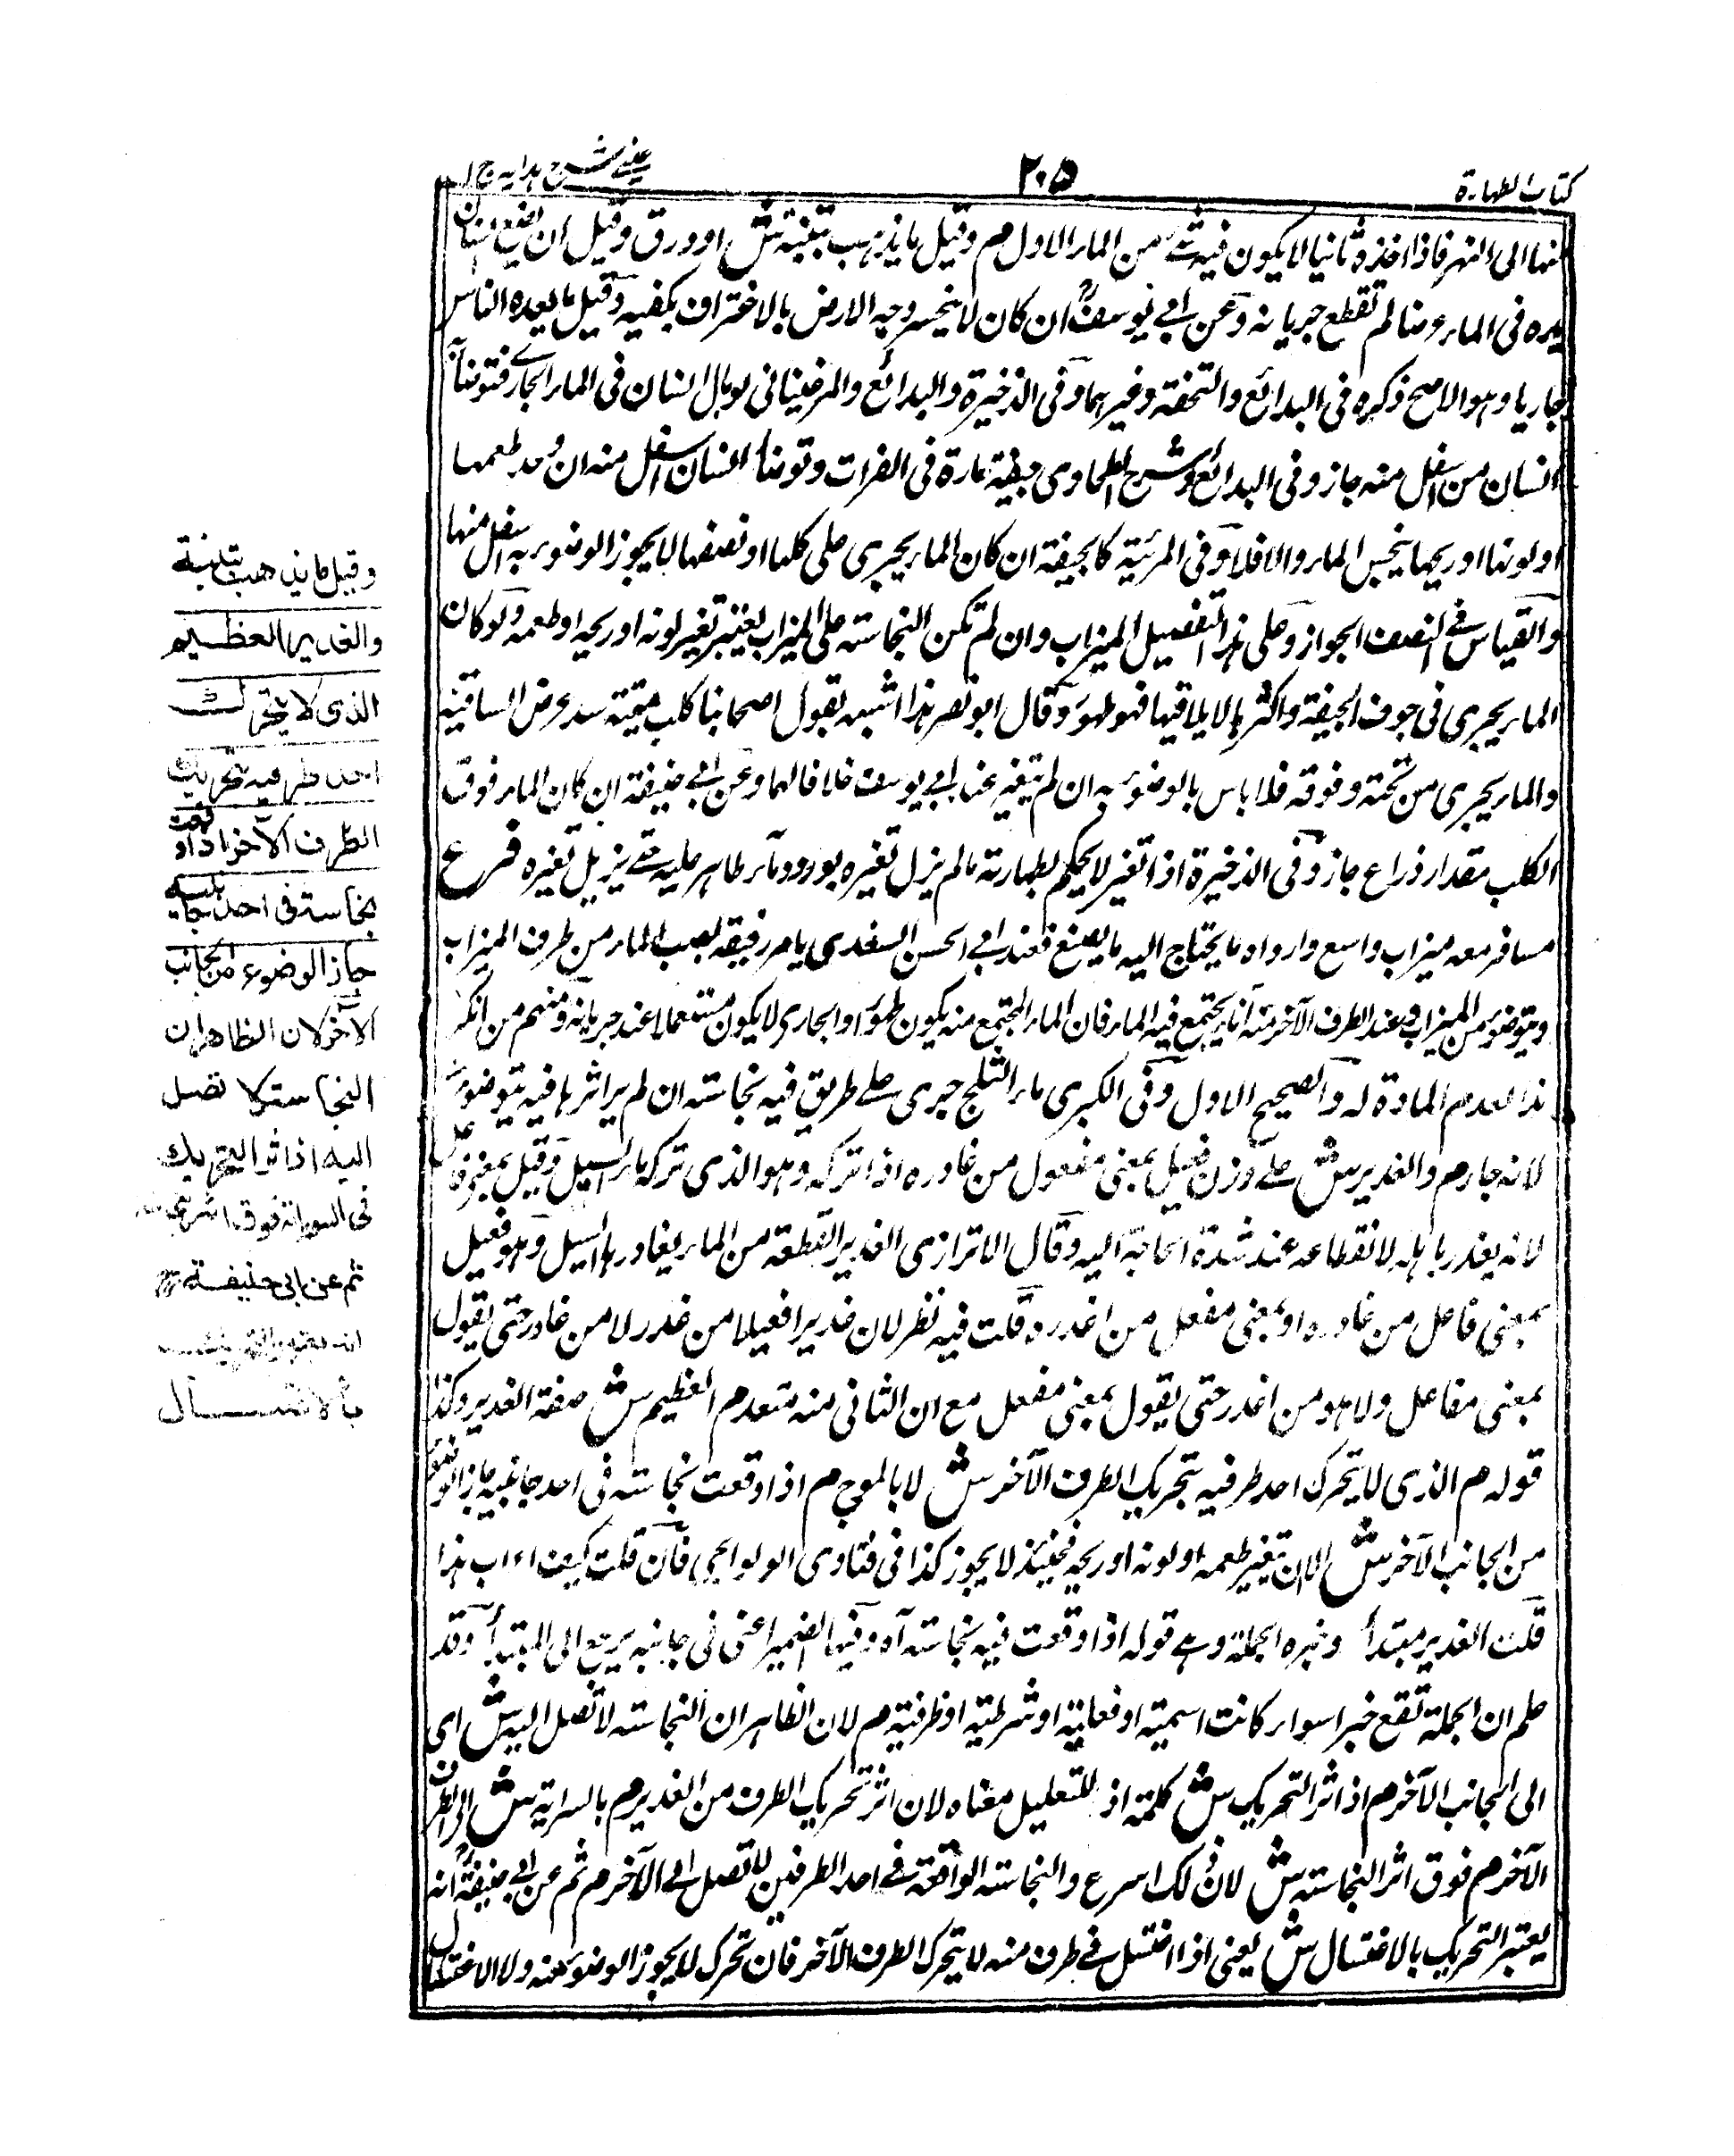 كتاب الطهارة
٢٠٥
عينے شرح ہدایہ ج ١
منها الى النهر فاذا اخذه ثانيا لا يكون فيه شئ من الماء الاول م وقيل ما يذهب بتبنة ش او ورق وقيل ان وضع انسان
يده فى الماء عرضا لم تقطع جريانه وعن ابي يوسف ان كان لا ينحسر وجه الارض بالاغتراف بكفيه وقيل ما يعده الناس
جاريا وهو الاصح ذكره فى البدائع والتحفة وغيرهما وفى الذخيرة والبدائع والمرغينانى لو بال انسان فى الماء الجارى فتوضأ
انسان من اسفل منه جاز وفى البدائع وشرح الطحاوى جيفة مارة فى الفرات وتوضأ انسان اسفل منه ان وجد طعمها
او لونها او ريحها ينجس الماء والا فلا وفى المرئية كالجيفة ان كان الماء يجرى على كلها او نصفها لا يجوز الوضوء به اسفل منها
والقياس فى النصف الجواز وعلى هذا التفصيل الميزاب وان لم تكن النجاسة على الميزاب يعتبر تغير لونه او ريحه او طعمه ولو كان
الماء يجرى فى جوف الجيفة واكثرها لا يلاقيها فهو طهور وقال ابو نصر هذا اشبه بقول اصحابنا كلب ميتة سد عرض الساقية
والماء يجرى من تحته وفوقه فلا باس بالوضوء به ان لم يتغير عند ابي يوسف خلافا لهما وعن ابي حنيفة ان كان الماء فوق
الكلب مقدار ذراع جاز وفى الذخيرة اذا تغير لا يحكم بطهارته ما لم يزل تغيره بورود ماء طاهر عليه حتے يزيل تغيره فرع
مسافر معه ميزاب واسع واداوة ما يحتاج اليه ما يصنع فعند ابي الحسن السغدى يامر رفيقه لصب الماء من طرف الميزاب
ويتوضوء من الميزاب وعند الطرف الآخر منه اناء يجتمع فيه الماء فان الماء المجتمع منه يكون طهورا والجارى لا يكون مستعملا عند جريانه ومنهم من انكر
هذا لعدم المادة له والصحيح الاول وفى الكبرى ماء الثلج جرى علے طريق فيه نجاسة ان لم ير اثرها فيه يتوضوء
لانه جار م والغدير ش علے وزن فعيل بمعنى مفعول من غادره اذا تركه وهو الذى تركه ماء السيل وقيل بمعنى فاعل
لانه يغدر باهله لانقطاعه عند شدة الحاجة اليه وقال الاترازى الغدير القطعة من الماء يغادرها السيل وهو فعيل
بمعنى فاعل من غادره او بمعنى مفعل من اغدره قلت فيه نظر لان غديرا فعيلا من غدر لا من غادر حتى يقول
بمعنى مفاعل ولا هو من اغدر حتى يقول بمعنى مفعل مع ان الثانى منه متعد م العظيم ش صفة الغدير وكذا
قوله م الذى لا يتحرك احد طرفيه بتحريك الطرف الآخر ش لا بالموج م اذا وقعت نجاسة فى احد جانبيه جاز الوضوء
من الجانب الآخر ش الا ان يتغير طعمه او لونه او ريحه فحينئذ لا يجوز كذا فى فتاوى الولوالجى فان قلت كيف اعراب هذا
قلت الغدير مبتدأ وخبره الجملة وهے قوله اذا وقعت فيه نجاسة آه وفيها الضمير اعنى فى جانبيه يرجع الى المبتدأ وقد
علم ان الجملة تقع خبرا سواء كانت اسمية او فعلية او شرطية او ظرفية م لان الظاهر ان النجاسة لا تصل اليه ش اى
الى الجانب الآخر م اذ اثر التحريك ش كلمة اذ للتعليل معناه لان اثر تحريك الطرف من الغدير م بالسراية ش الى الطرف
الآخر م فوق اثر النجاسة ش لان ذلك اسرع والنجاسة الواقعة فے احد الطرفين لا تصل الے الآخر م ثم عن ابي حنيفة انه
يعتبر التحريك بالاغتسال ش يعنى اذا اغتسل فے طرف منه لا يتحرك الطرف الآخر فان تحرك لا يجوز الوضوء منه ولا الاغتسال
وقيل ما يذهب بتبنة
والغدير العظيم
الذى لا يتحرك
احد طرفيه بتحريك
الطرف الآخر اذا وقعت
نجاسة فى احد جانبيه
جاز الوضوء من الجانب
الآخر لان الظاهر ان
النجاسة لا تصل
اليه اذ اثر التحريك
فى السراية فوق اثر النجاسة
ثم عن ابى حنيفة
انه يعتبر التحريك
بالاغتسال